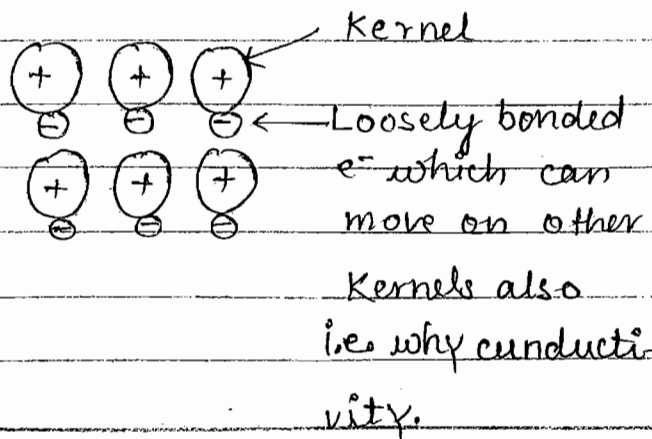 Kernel
+ + +
- - -
Loosely bonded
e⁻ which can
+ + +
- - -
move on other
Kernels also
i.e. why cunducti-
vity.